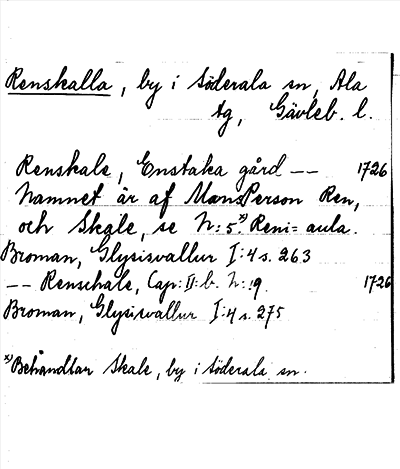 Renskalla, by i Söderala sn, Ala
tg, Gävleb. l.
Renskale, Enstaka gård -- 1726
Namnet är af MansPerson Ren,
och Skale, se N: 5.x) Reni= aula.
Broman, Glysisvallur I:4 s. 263
-- Renschale, Cap: II: b. N: 9. 1726
Broman, Glysisvallur I:4 s. 275
x) Behandlar Skale, by i Söderala sn.